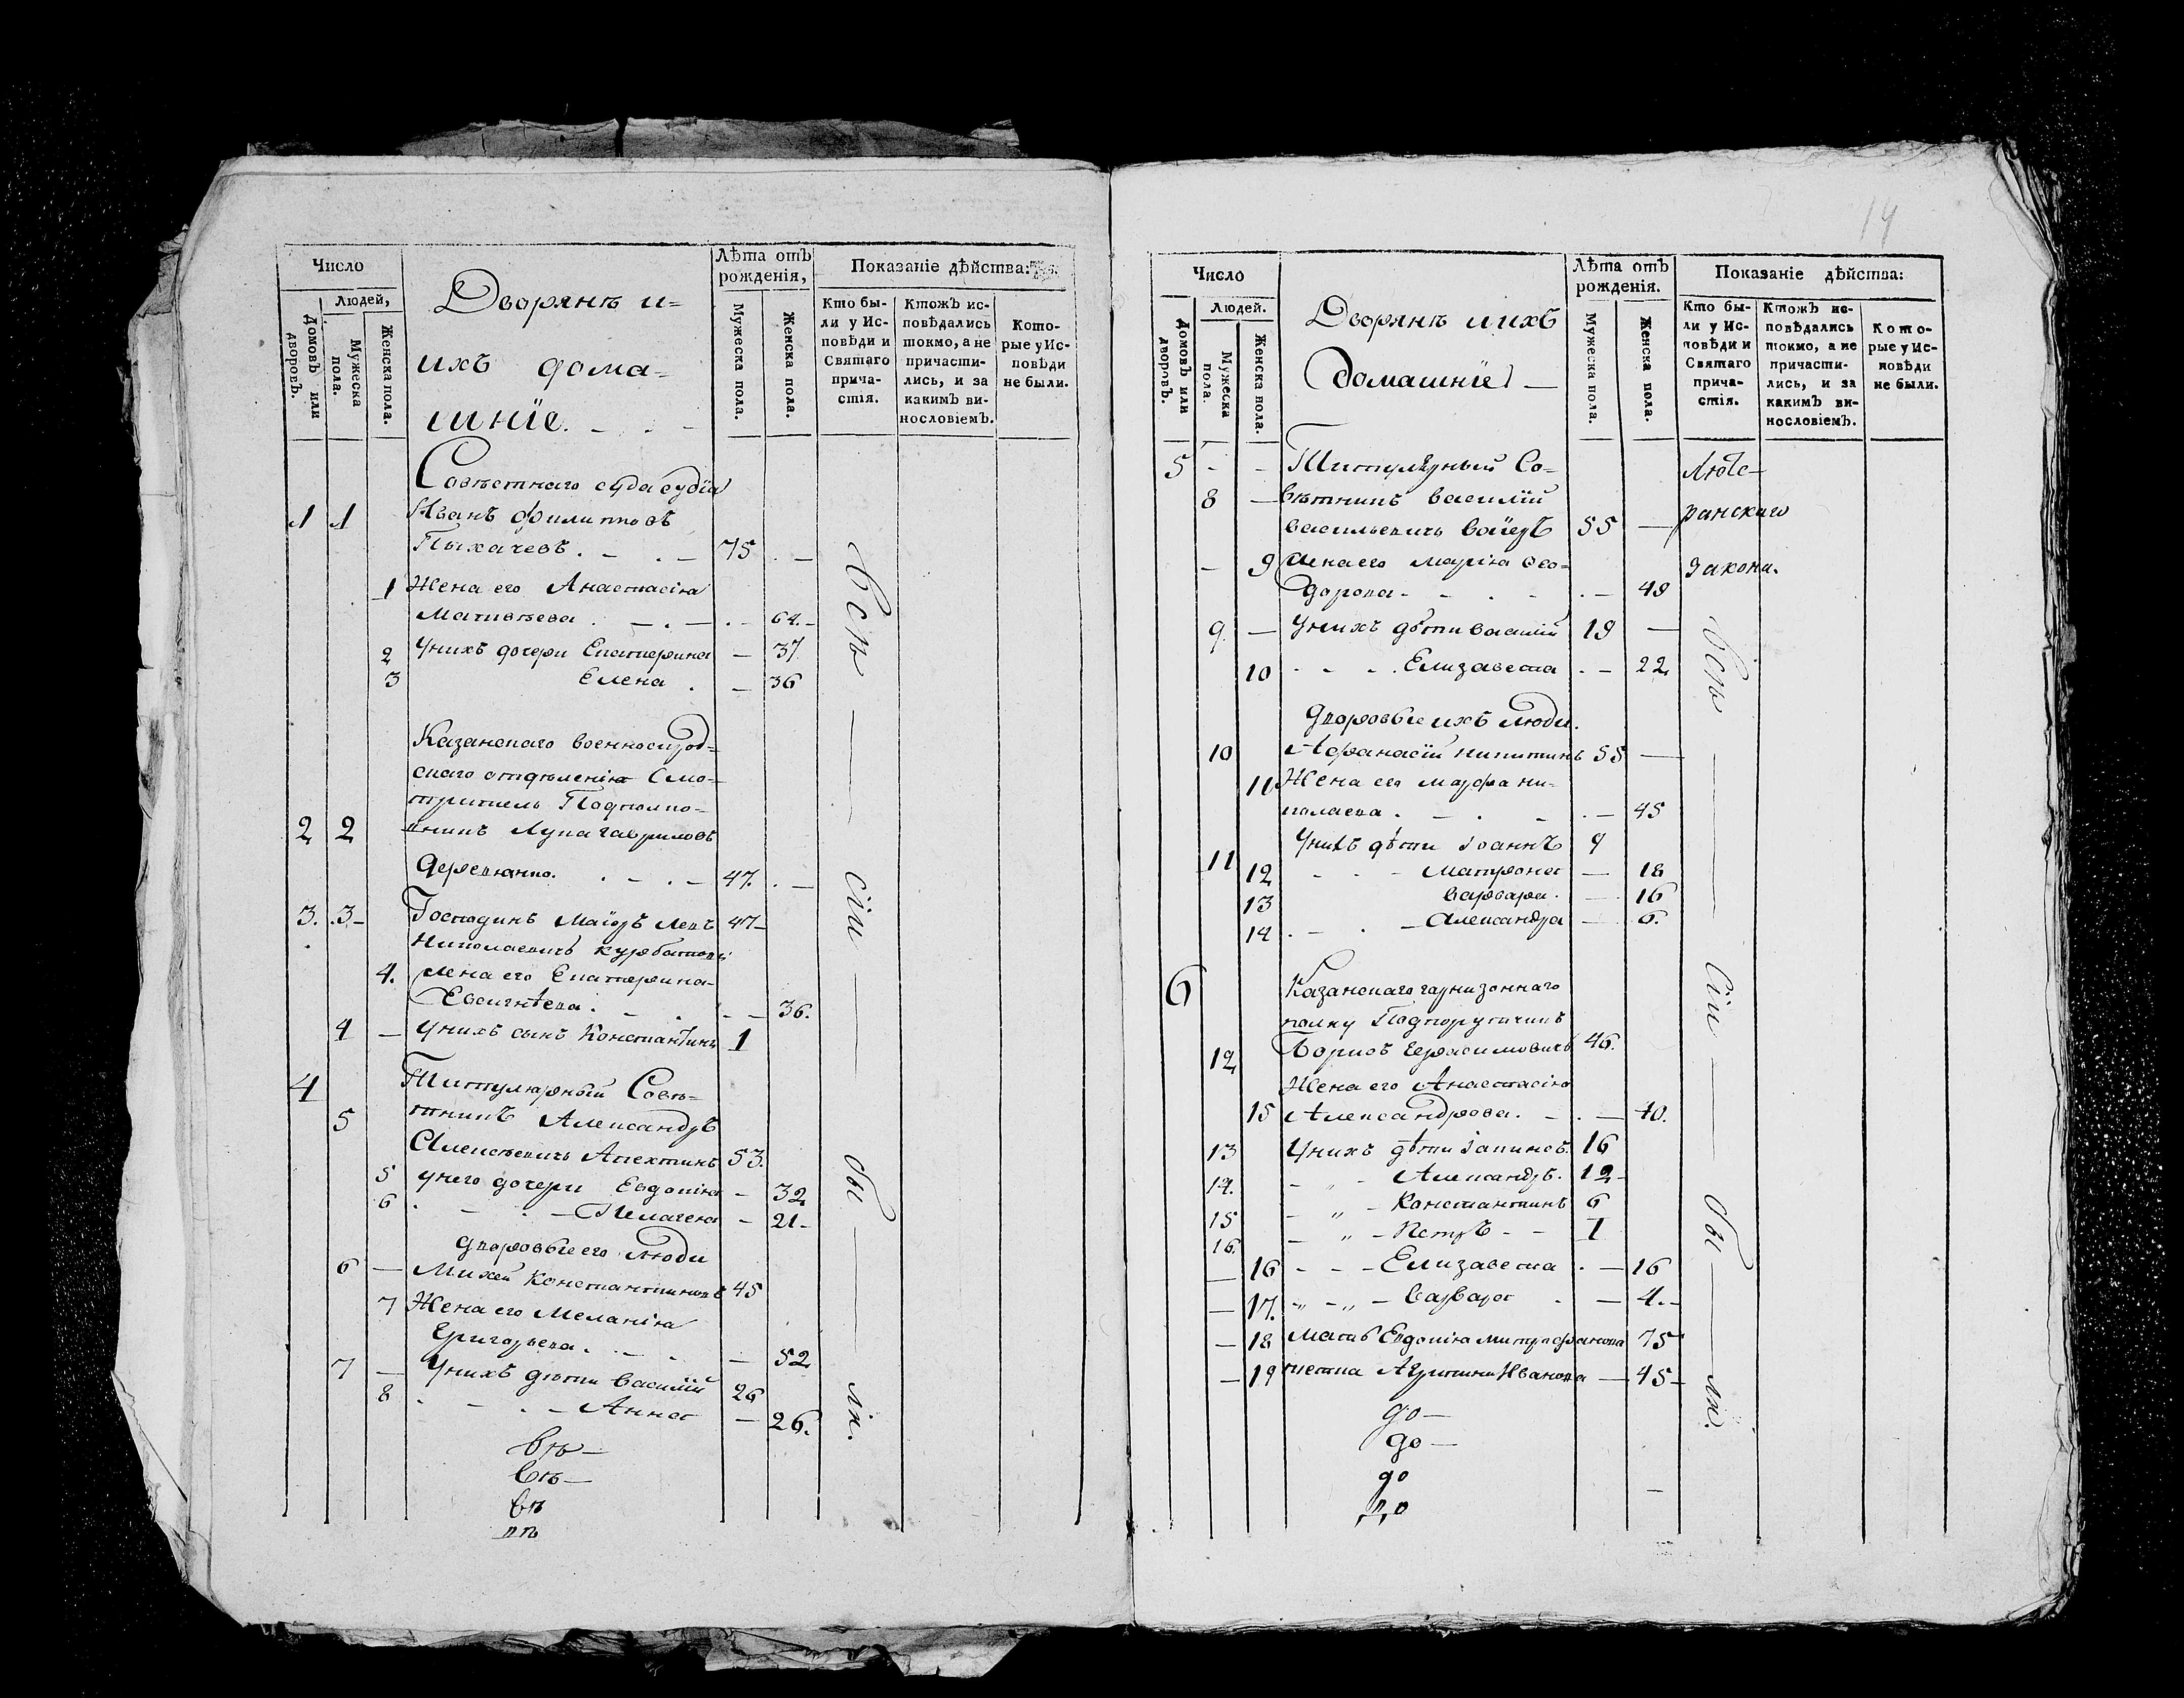 Число
Людей,
Домовъ или дворовъ.
Мужеска пола.
Женска пола.
Дворянъ и=
ихъ дома=
шніе.
Лѣта отъ рожденія,
Мужеска пола.
Женска пола.
Показаніе дѣйства:
Кто бы-
ли у Ис-
повѣди и
Святаго
прича-
стія.
Ктожъ ис-
повѣдались
токмо, а не
причасти-
лись, и за
какимъ ви-
нословіемъ.
Кото-
рые у Ис-
повѣди
не были.
Совѣстнаго суда судія
1 1 Иванъ Филиповъ
Пыхачевъ. 75
1 Жена его Анастасія
Матвѣева 64.
2 Унихъ дочери Екатерина 37
3 Елена 36
Казанскаго военносирод=
скаго отдѣленія Смо=
тритель Подполко=
2 2 вникъ Лука Гавриловъ
47.
3. 3 Господинъ Маіоръ Левъ 47
Николаевичь Курбатовъ
4. Жена его Екатерина
Евсигнѣева. 36.
4 Унихъ сынъ Константинъ 1
4 Титулярный Совѣ=
5 тникъ Александръ
Алексѣевичь Апехтинъ 53.
5 Унего дочери Евдокія 32
6 Пелагея 21
Дворовые его люди
6 Михей Константиновъ 45
7 Жена его Меланія
Григорьева. 52
7 Унихъ дѣти Василій 26
8 Анна 26.
всѣ сіи бы ли.
въ
въ
въ
въ
14
Число
Людей.
Домовъ или дворовъ.
Мужеска пола.
Женска пола.
Дворянъ и ихъ
домашніе
Лѣта отъ рожденія.
Мужеска пола.
Женска пола.
Показаніе дѣйства:
Кто бы-
ли у Ис-
повѣди и
Святаго
прича-
стія.
Ктожъ ис-
повѣдались
токмо, а не
причасти-
лись, и за
какимъ ви-
нословіемъ.
Кото-
рые у Ис-
повѣди
не были.
5 Титулярный Со= Люте-
8 вѣтникъ Василій
Васильевичь 55 ранскаго
9 Жена его Марія Ѳео= закона.
дорова 49
9. Унихъ дѣти Василій 19
10 Елизавета 22
Дворовые ихъ люди.
10 Афанасій Никитинъ 55
11 Жена его Марфа Ни=
колаева. 45
11 Унихъ дѣти Іоаннъ 9
12 Матрона 18
13 Варвара. 16
14 Александра 6.
6 Казанскаго гарнизоннаго
полку Подпоручикъ
12 Борисъ Герасимовичь 46.
Жена его Анастасія
15 Александрова. 40.
13 Унихъ дѣти 16
14. Александръ. 12
15 Константинъ 6
16. Петръ 1
16 Елизавета 16
17. Варвара 4.
18 Мать Евдокія Митрофанова 75
19 Ивановна 45
всѣ сіи бы ли.
до
до
до
до